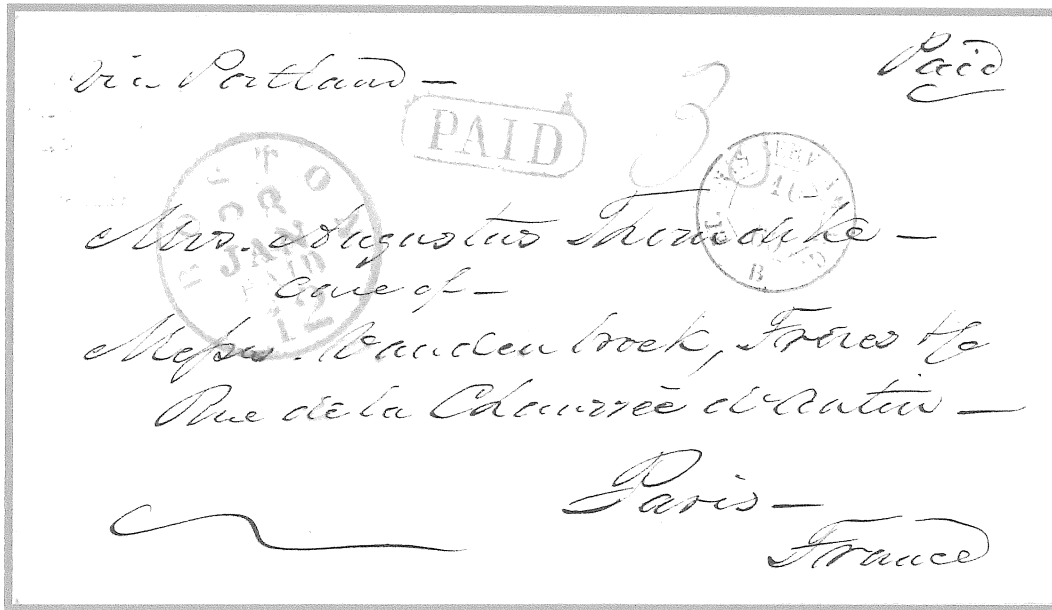 via Portland —
Paid
PAID
3
BOSTON
JAN
PAID
12
Mrs. Augustus Thorndike —
care of —
Messrs. Vandenbroek, Frères & Co
Rue de la Chaussée d'Antin —
Paris —
France